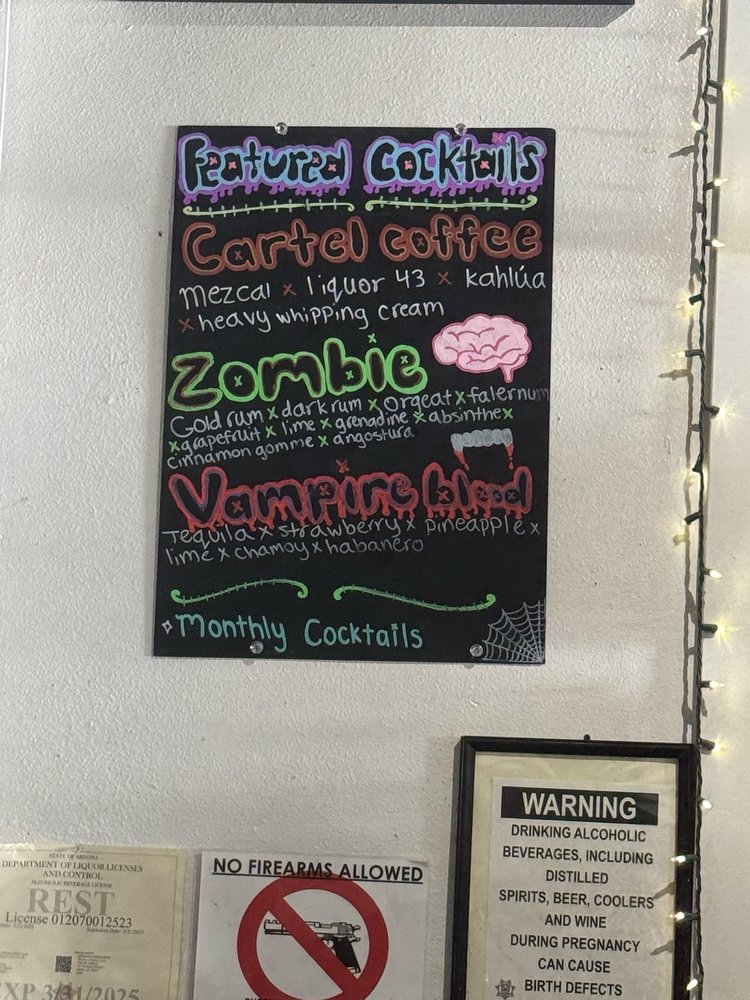 Featured Cocktails
Cartel coffee
mezcal x liquor 43 x kahlúa
x heavy whipping cream
Zombie
Gold rum x dark rum x Orgeat x falernum
x grapefruit x lime x grenadine x absinthe x
cinnamon gomme x angostura
Vampire blood
Tequila x strawberry x pineapple x
lime x chamoy x habanero
Monthly Cocktails
STATE OF ARIZONA
DEPARTMENT OF LIQUOR LICENSES
AND CONTROL
ALCOHOLIC BEVERAGE LICENSE
REST
License 012070012523
EXP 3/31/2025
NO FIREARMS ALLOWED
WARNING
DRINKING ALCOHOLIC
BEVERAGES, INCLUDING
DISTILLED
SPIRITS, BEER, COOLERS
AND WINE
DURING PREGNANCY
CAN CAUSE
BIRTH DEFECTS